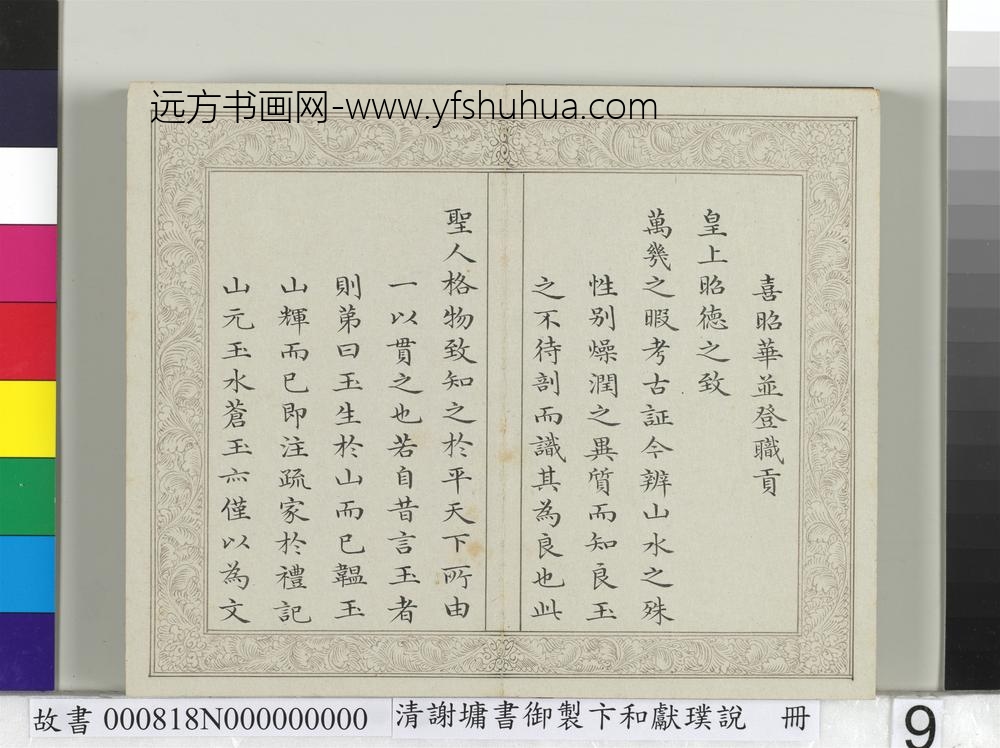 远方书画网-www.yfshuhua.com
喜昭華並登職貢
皇上昭德之致
萬幾之暇考古証今辨山水之殊
性別燥潤之異質而知良玉
之不待剖而識其為良也此
聖人格物致知之於平天下所由
一以貫之也若自昔言玉者
則第曰玉生於山而已韞玉
山輝而已即注疏家於禮記
山元玉水蒼玉亦僅以為文
故書 000818N000000000
清謝墉書御製卞和獻璞說 冊
9